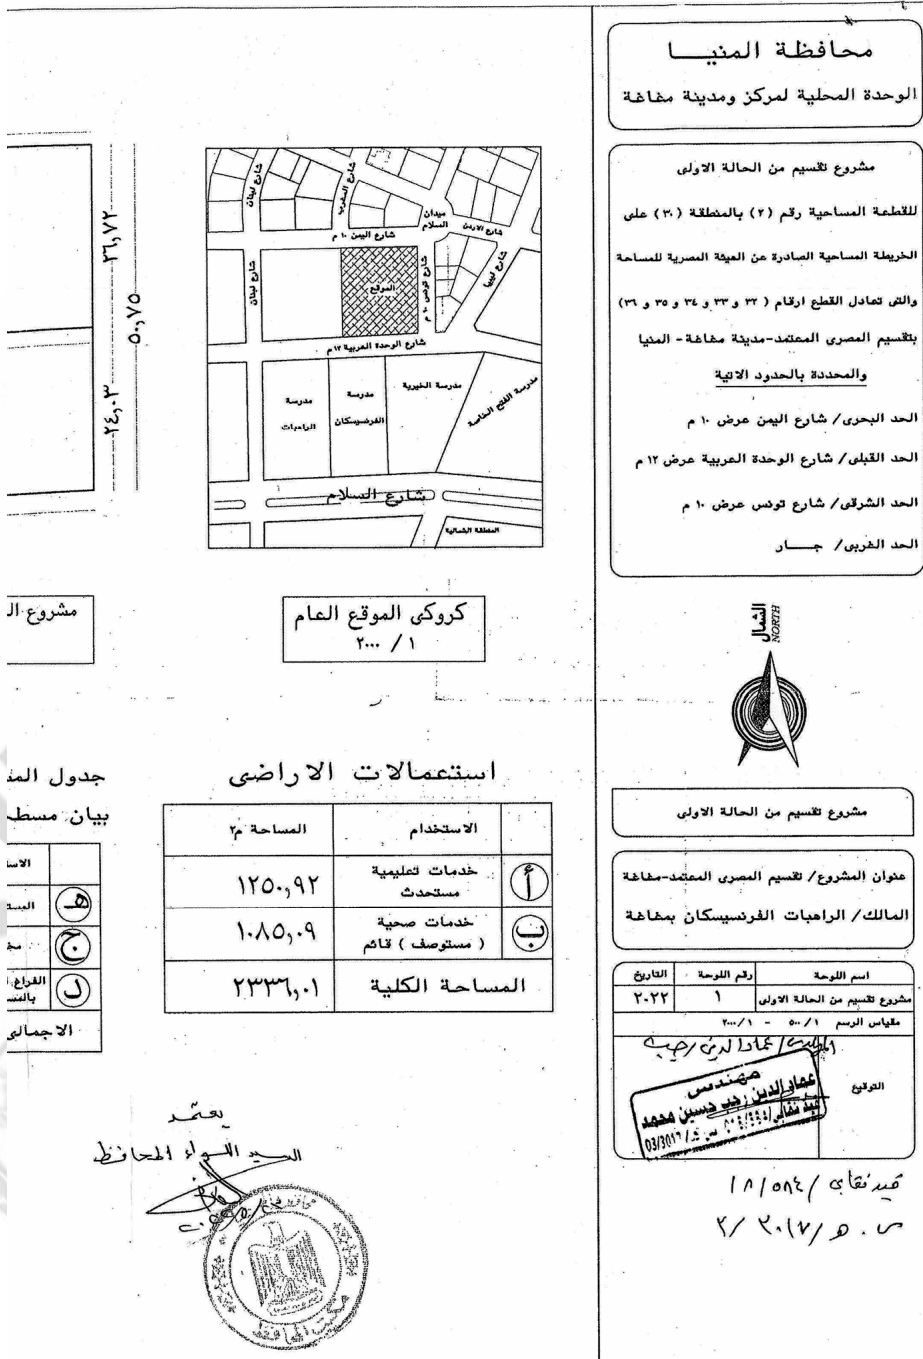 محافظة المنيـــا
الوحدة المحلية لمركز ومدينة مغاغة
مشروع تقسيم من الحالة الاولى
للقطعة المساحية رقم (٢) بالمنطقة (٣٠) على
الخريطة المساحية الصادرة عن الهيئة المصرية للمساحة
والتى تعادل القطع ارقام ( ٣٢ و ٣٣ و ٣٤ و ٣٥ و ٣٦)
بتقسيم المصرى المعتمد-مدينة مغاغة - المنيا
والمحددة بالحدود الاتية
الحد البحرى/ شارع اليمن عرض ١٠ م
الحد القبلى/ شارع الوحدة العربية عرض ١٢ م
الحد الشرقى/ شارع تونس عرض ١٠ م
الحد الغربى/ جـــــار
الشمال
NORTH
مشروع تقسيم من الحالة الاولى
عنوان المشروع/ تقسيم المصرى المعتمد-مغاغة
المالك/ الراهبات الفرنسيسكان بمغاغة
اسم اللوحة رقم اللوحة التاريخ
مشروع تقسيم من الحالة الاولى ١ ٢٠٢٢
مقياس الرسم ١/ ٥٠٠ - ١/ ٢٠٠٠
التوقيع
المهندس/ عماد الدين رجب
مهندس
عماد الدين رجب حسين محمد
قيد نقابى / ٥٨٤ / ١٨
س . ه / ٣٠١٧ / ٣
شارع لبنان
شارع المغرب
ميدان
السلام
شارع الاردن
شارع اليمن ١٠ م
شارع ليبيا
شارع لبنان
الموقع
شارع تونس ١٠ م
شارع الوحدة العربية ١٢ م
مدرسة
الراهبات
مدرسة
الفرنسيسكان
مدرسة الخيرية
مدرسة الفتح الخاصة
شارع السلام
المنطقة الشمالية
كروكى الموقع العام
١ / ٢٠٠٠
استعمالات الاراضى
الاستخدام المساحة م٢
أ خدمات تعليمية مستحدث ١٢٥٠,٩٢
ب خدمات صحية ( مستوصف ) قائم ١٠٨٥,٠٩
المساحة الكلية ٢٣٣٦,٠١
يعتمد
السيد اللواء المحافظ
مكتب المحافظ
٢٦,٧٢
٢٤,٠٣
٥٠,٧٥
مشروع ال
جدول المن
بيان مسطح
الاس
هـ البست
ج مج
د الفراغ
بالمس
الاجمالى